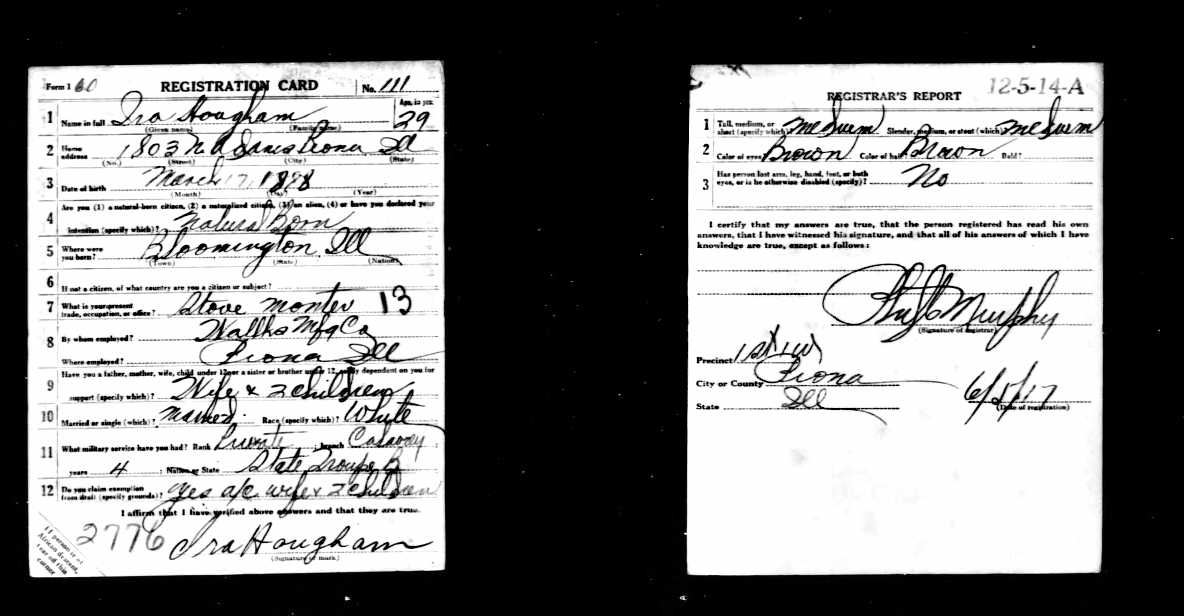 Form 1 60 REGISTRATION CARD No. 111
1 Name in full Ira Hougham Age, in yrs. 29
(Given name) (Family name)
2 Home address 1803 N Adams Peoria Ill
(No.) (Street) (City) (State)
3 Date of birth March 17, 1888
(Month) (Day) (Year)
4 Are you (1) a natural-born citizen, (2) a naturalized citizen, (3) an alien, (4) or have you declared your
intention (specify which)? Natural Born
5 Where were you born? Bloomington Ill
(Town) (State) (Nation)
6 If not a citizen, of what country are you a citizen or subject?
7 What is your present trade, occupation, or office? Stove Monter 13
8 By whom employed? Mfg Co
Where employed? Peoria Ill
9 Have you a father, mother, wife, child under 12, or a sister or brother under 12, solely dependent on you for
support (specify which)? Wife & 2 children
10 Married or single (which)? Married Race (specify which)? White
11 What military service have you had? Rank Private ; branch Calavary
years 4 ; Nation or State State Troupe B
12 Do you claim exemption from draft (specify grounds)? Yes a/c wife & 2 children
I affirm that I have verified above answers and that they are true.
2776 Ira Hougham
(Signature or mark)
If person is of African descent, tear off this corner
12-5-14-A
REGISTRAR'S REPORT
1 Tall, medium, or short (specify which)? Medium Slender, medium, or stout (which)? Medium
2 Color of eyes? Brown Color of hair? Brown Bald?
3 Has person lost arm, leg, hand, foot, or both eyes, or is he otherwise disabled (specify)? No
I certify that my answers are true, that the person registered has read his own
answers, that I have witnessed his signature, and that all of his answers of which I have
knowledge are true, except as follows:
Murphy
(Signature of registrar)
Precinct 1st
City or County Peoria
State Ill
6/5/17
(Date of registration)